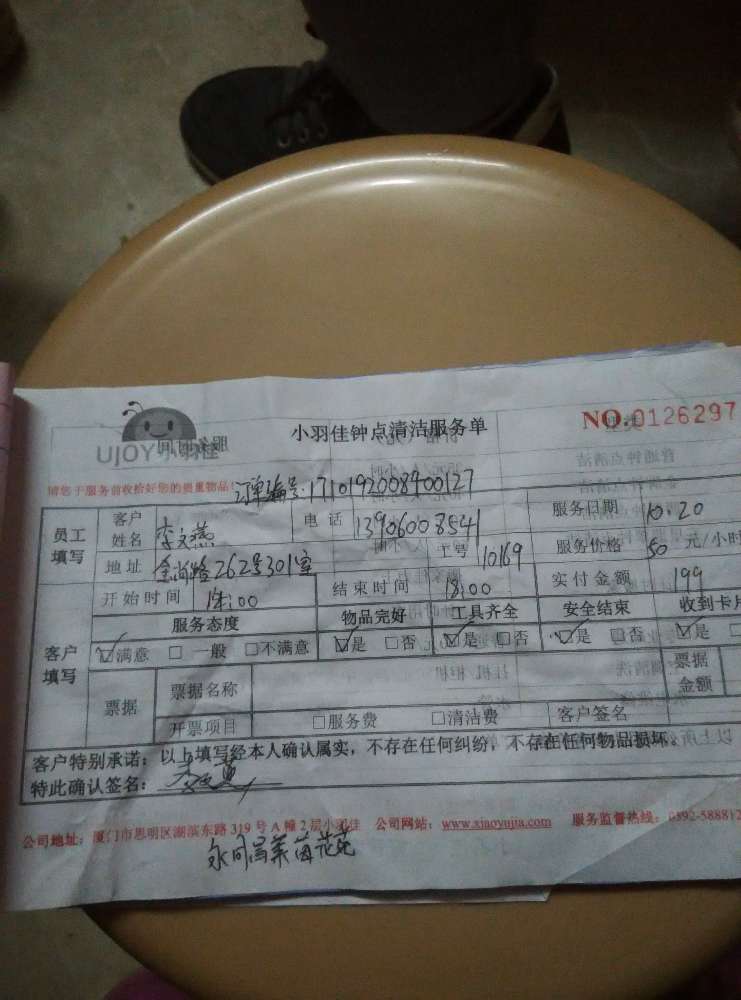 UJOY小羽佳
小羽佳钟点清洁服务单
NO.0126297
请您于服务前收拾好您的贵重物品!
订单编号:1710192008900127
员工填写 客户姓名 李文燕 电话 13906008541 服务日期 10.20
地址 金尚路262号301室 工号 10169 服务价格 50 元/小时
开始时间 14:00 结束时间 18:00 实付金额 199
服务态度 物品完好 工具齐全 安全结束 收到卡片
客户填写 ☑满意 □一般 □不满意 ☑是 □否 ☑是 □否 ☑是 □否 ☑是
票据 票据名称 票据金额
开票项目 □服务费 □清洁费 客户签名
客户特别承诺:以上填写经本人确认属实,不存在任何纠纷,不存在任何物品损坏。
特此确认签名:
公司地址:厦门市思明区湖滨东路319号A幢2层小羽佳 公司网站:www.xiaoyujia.com 服务监督热线:0592-588812